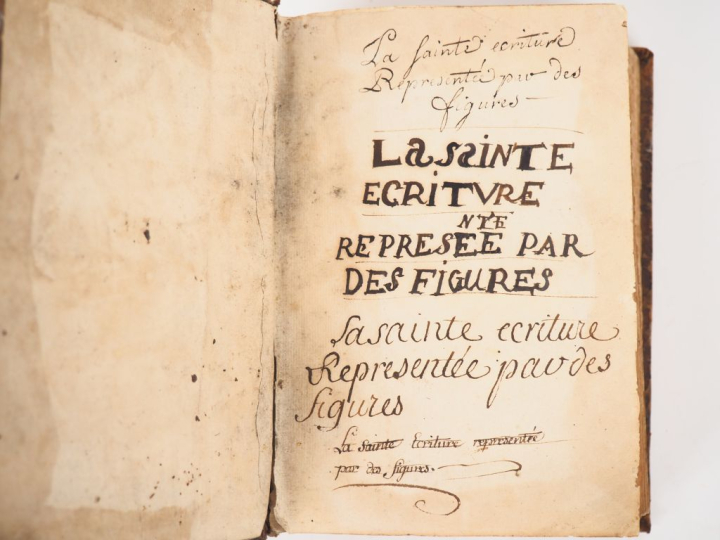 La sainte ecriture
Representée par des
figures
LA SAINTE
ECRITVRE
NTE
REPRESEE PAR
DES FIGURES
La sainte ecriture
Representée par des
figures
La sainte Ecriture representée
par des figures.